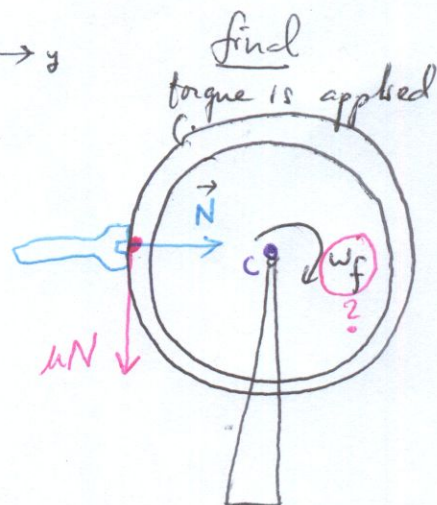 → y
find
torque is applied
N
C
ω_f
?
μN